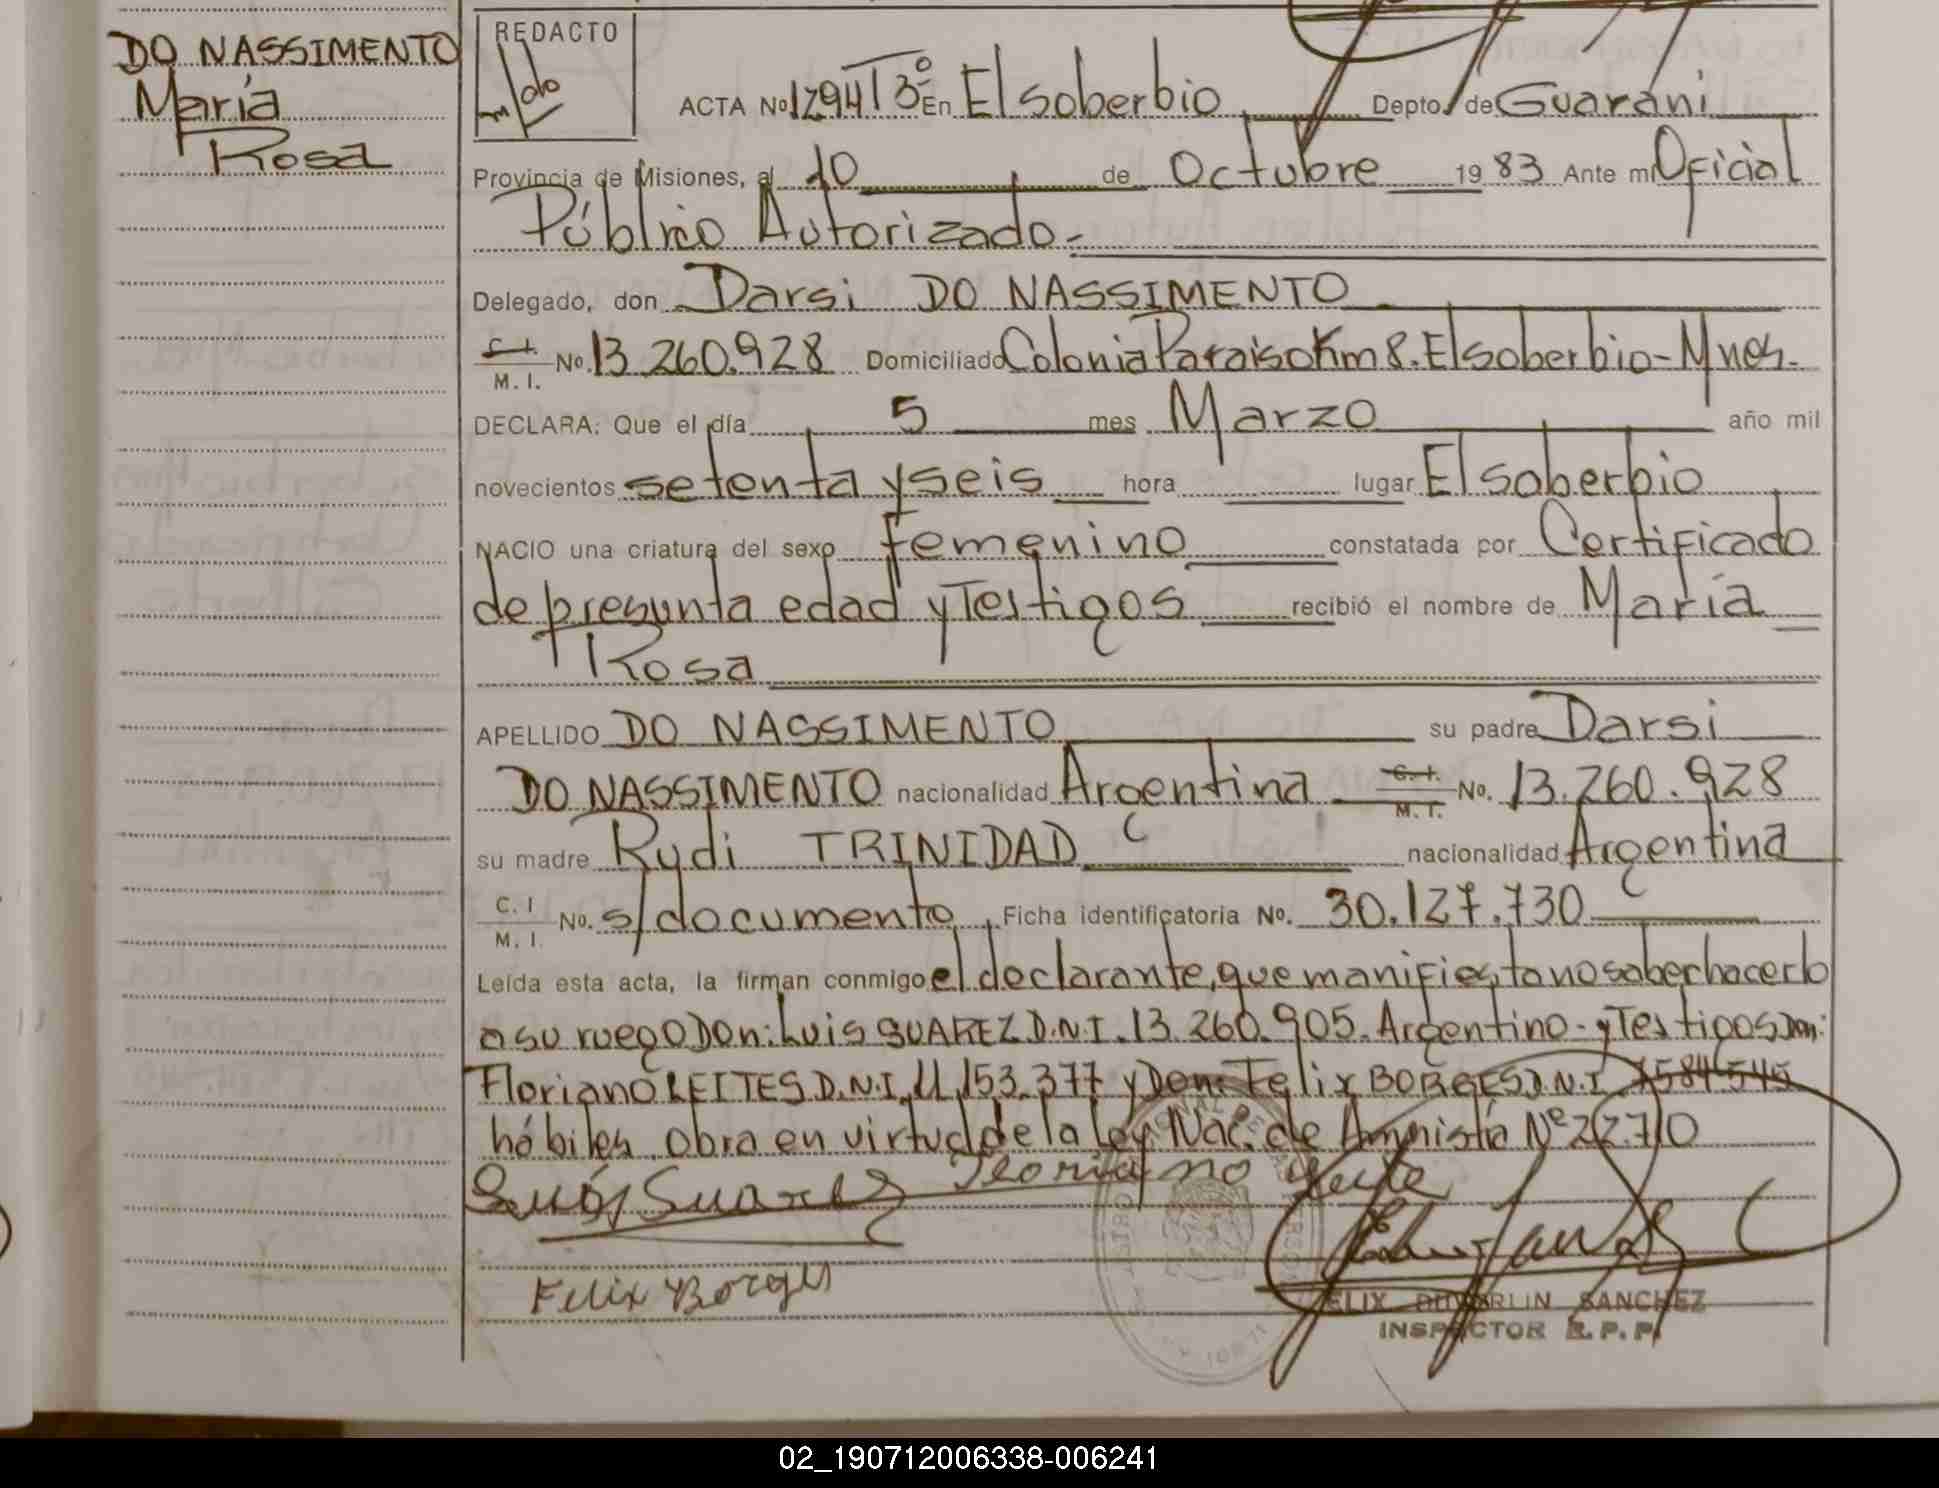 DO NASSIMENTO
María
Rosa
REDACTO
ACTA No 1294 T 3º En El soberbio Depto. de Guarani
Provincia de Misiones, al 10 de Octubre 19 83 Ante mi Oficial
Público Autorizado.-
Delegado, don Darsi DO NASSIMENTO
C. I.
M. I. No. 13.260.928 Domiciliado Colonia Paraiso Km 8. El soberbio - Mnes.
DECLARA: Que el día 5 mes Marzo año mil
novecientos setenta y seis hora lugar El soberbio
NACIO una criatura del sexo femenino constatada por Certificado
de presunta edad y Testigos recibió el nombre de María
Rosa
APELLIDO DO NASSIMENTO su padre Darsi
DO NASSIMENTO nacionalidad Argentina C. I.
M. I. No. 13.260.928
su madre Rydi TRINIDAD nacionalidad Argentina
C. I
M. I. No. s/documento, Ficha identificatoria No. 30.127.730
Leída esta acta, la firman conmigo el declarante, que manifiesta no saber hacerlo
a su ruego Don: Luis SUAREZ D.N.I. 13.260.905. Argentino - y Testigos Don:
Floriano LEITES D.N.I. 11.153.377 y Don: Felix BORGES D.N.I. 7584.545
hábiles. Obra en virtud de la Ley Nac. de Amnistía Nº 22.710
Luis Suarez
Felix Borges
FELIX DUVERLIN SANCHEZ
INSPECTOR R. P. P.
02_190712006338-006241